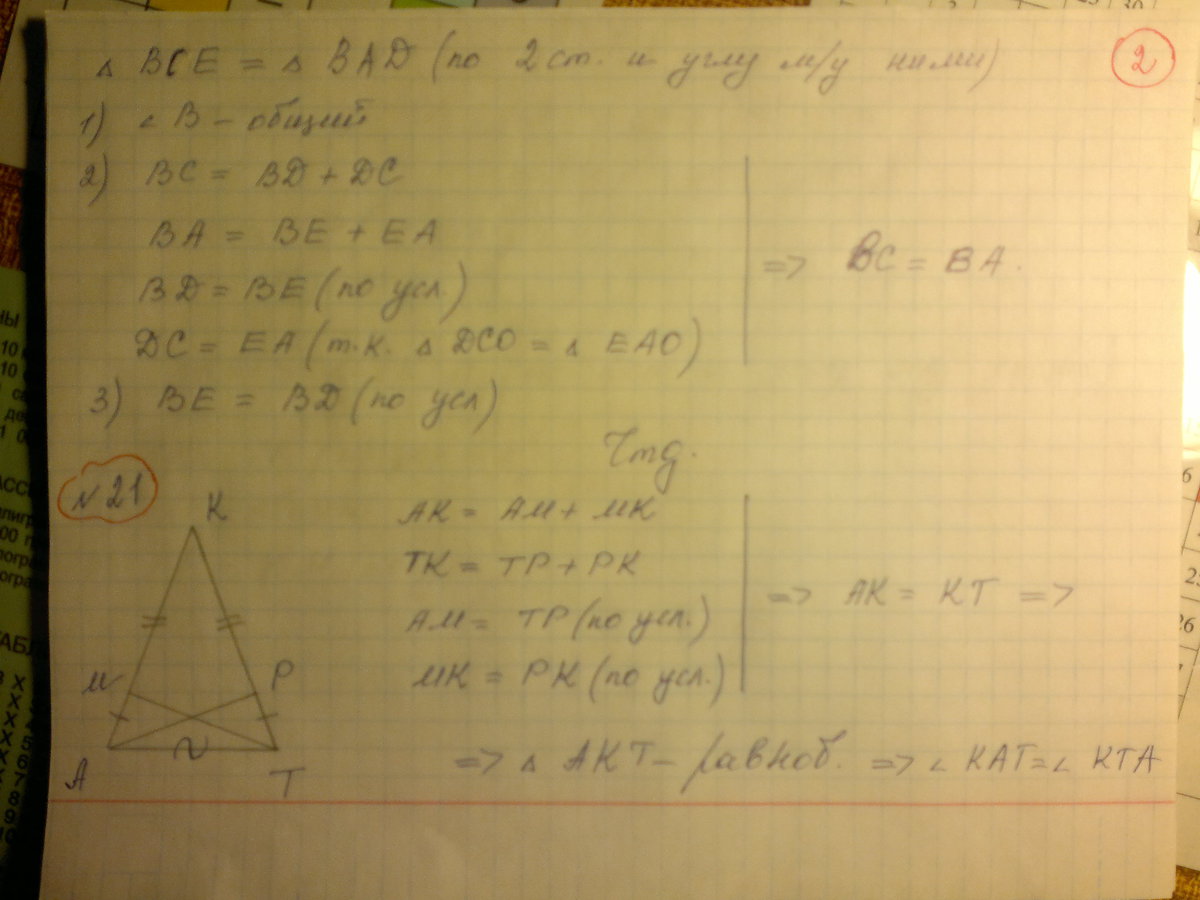 △ BCE = △ BAD (по 2 ст. и углу м/у ними)
2
1) ∠ B – общий
2) BC = BD + DC
BA = BE + EA
BD = BE (по усл.)
DC = EA (т.к. △ DCO = △ EAO)
=> BC = BA.
3) BE = BD (по усл)
Чтд.
№ 21
K
M
P
A
T
AK = AM + MK
TK = TP + PK
AM = TP (по усл.)
MK = PK (по усл.)
=> AK = KT =>
=> △ AKT – равноб. => ∠ KAT = ∠ KTA